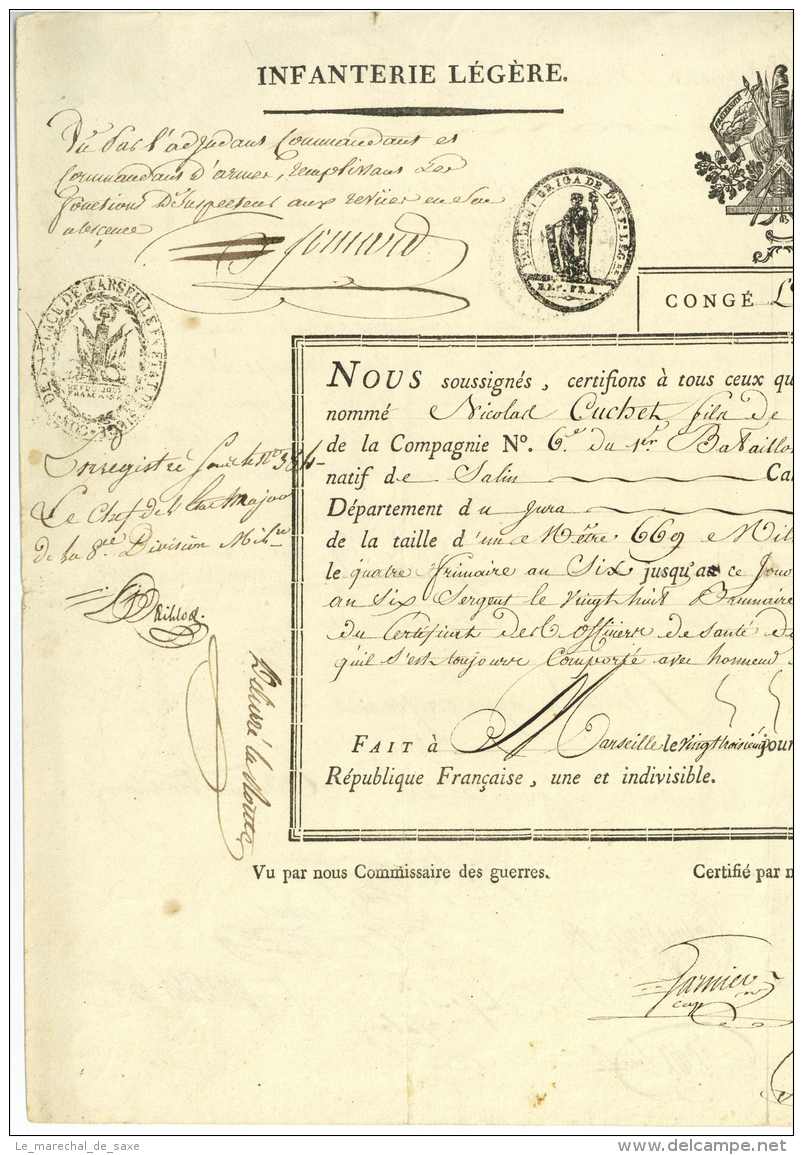 INFANTERIE LÉGÈRE.
Vu par l'adjudant Commandant et
Commandant d'armes, remplissant les
fonctions D'Inspecteur aux revües en son
absence
DE BRIGADE D'INF. LÉGÈRE
REP. FRA.
PLACE DE MARSEILLE EN ÉTAT DE SIÈGE
RÉPUBLIQUE FRANÇAISE
CONGÉ
Enregistré sous le No.
Le Chef de l'Etat Major
de la 8.eme Division Mil.re
Délivré la Route
NOUS soussignés, certifions à tous ceux qu
nommé Nicolas Cuchet fils de
de la Compagnie N°. 6.e du 1er Bataillon
natif de Salin Ca
Département du Jura
de la taille d'un Mètre 669 Mil
le quatre frimaire an Six jusqu'a ce Jour
an six Sergent le vingt huit Brumaire
du Certificat des Officiers de santé de
qu'il s'est toujours comporté avec honneur
FAIT à Marseille le vingt troisième jour
République Française, une et indivisible.
Vu par nous Commissaire des guerres.
Certifié par n
Garnier
cap
Le_marechal_de_saxe
delcampe.net